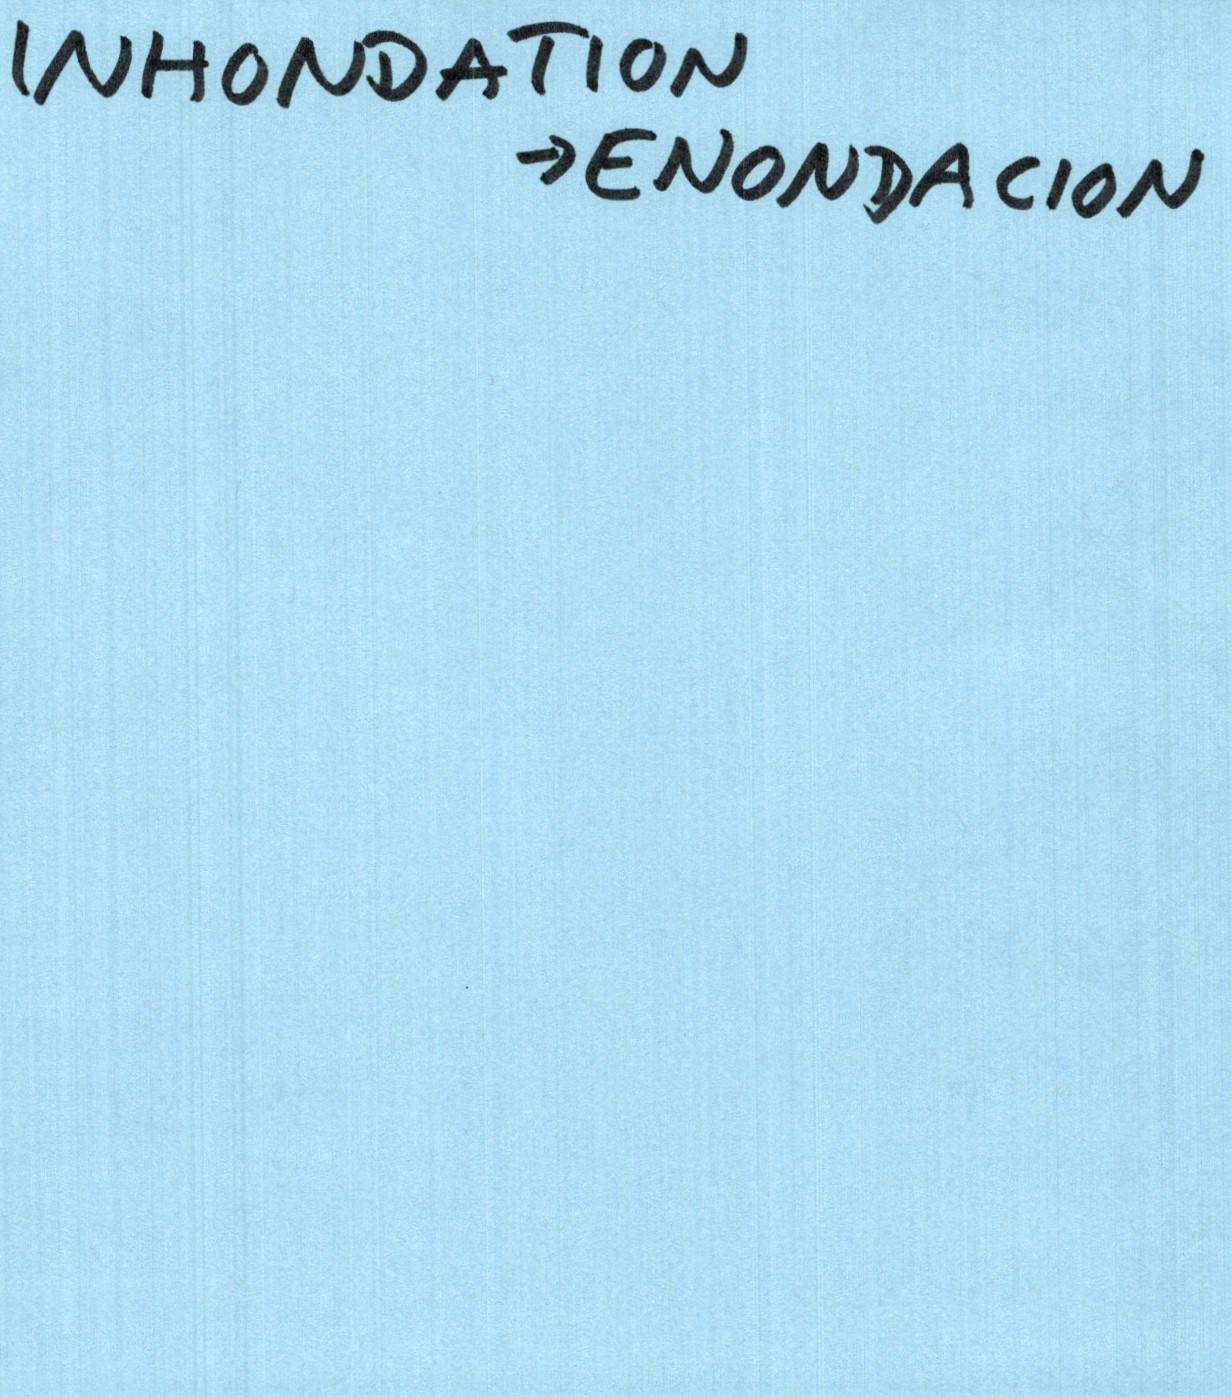 INHONDATION
→ENONDACION